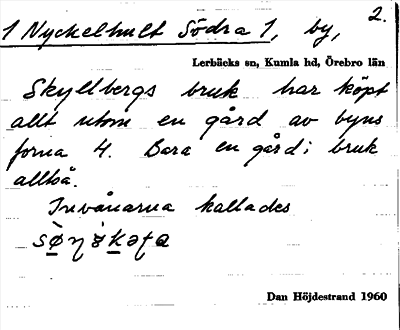 2.
1 Nyckelhult Södra 1, by,
Lerbäcks sn, Kumla hd, Örebro län
Skyllbergs bruk har köpt
allt utom en gård av byns
forna 4. Bara en gård i bruk
alltså.
Invånarna kallades
Dan Höjdestrand 1960